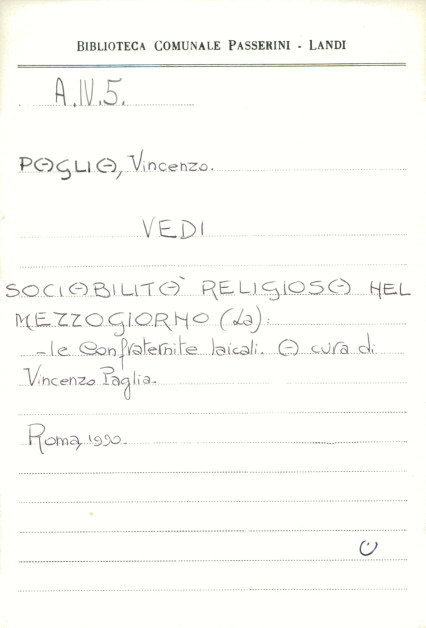 BIBLIOTECA COMUNALE PASSERINI - LANDI
A.IV.5.
PAGLIA, Vincenzo.
VEDI
SOCIABILITÀ RELIGIOSA NEL
MEZZOGIORNO (La):
- le Confraternite laicali. A cura di
Vincenzo Paglia.
Roma, 1990.